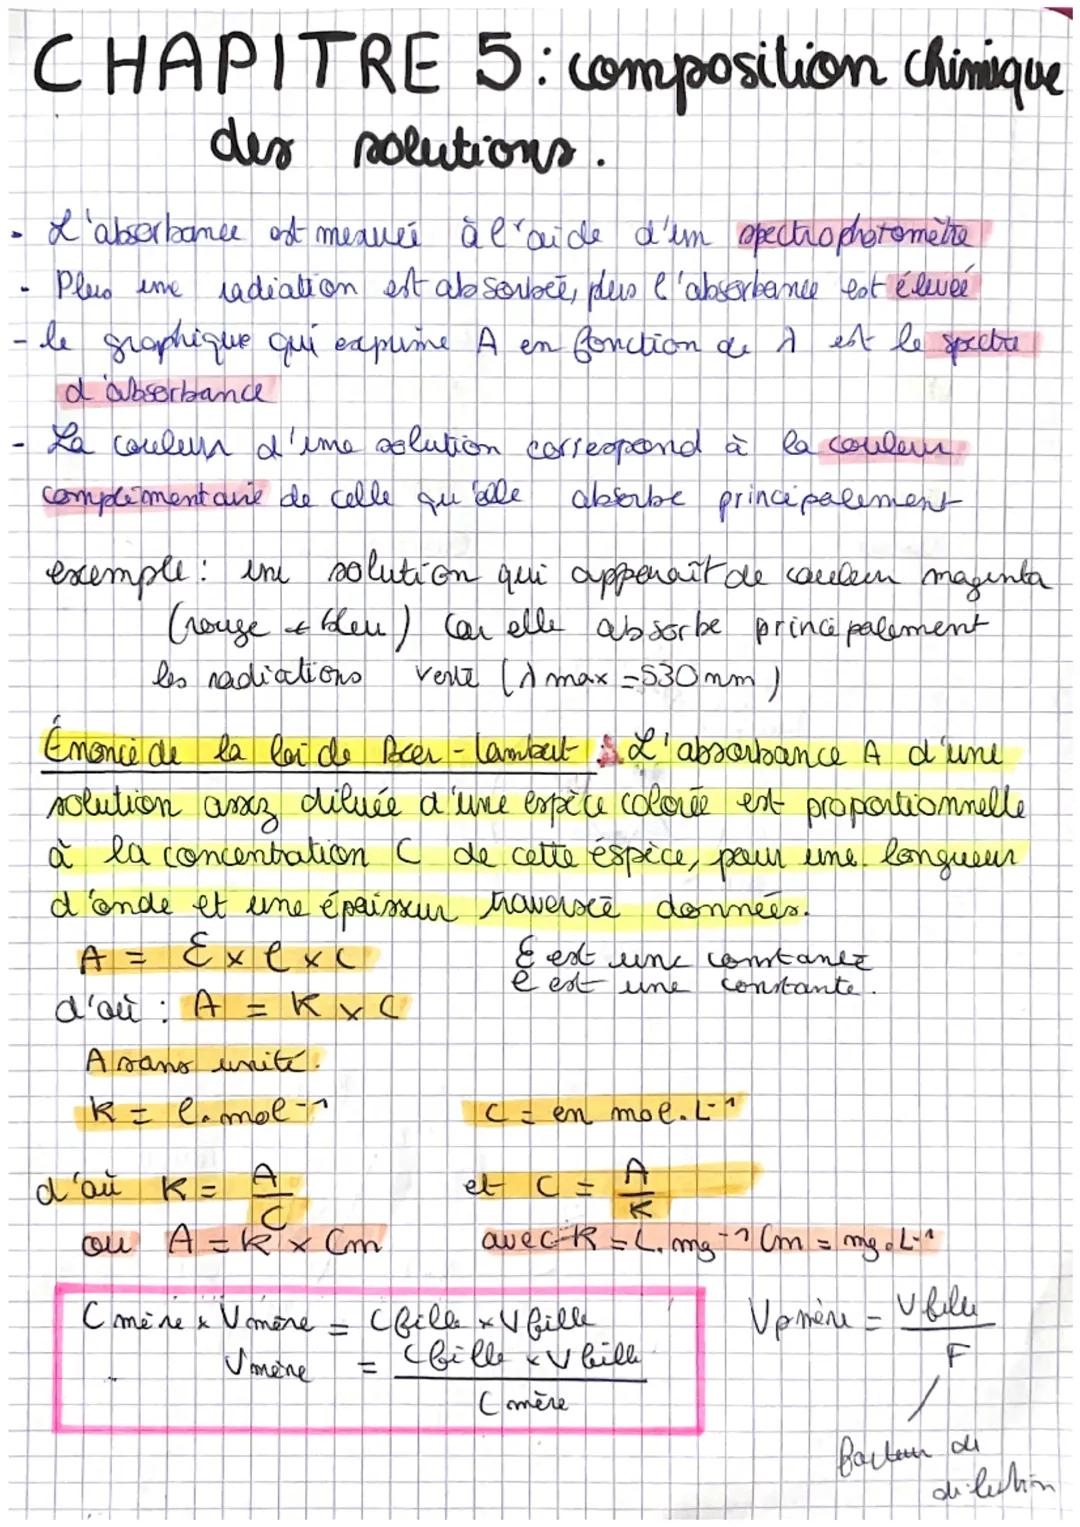 CHAPITRE 5: composition chimique
des solutions.
- L'absorbance est mesurée à l'aide d'un spectrophotomètre
- Plus une radiation est absorbée, plus l'absorbance est élevée
- le graphique qui exprime A en fonction de λ est le spectre
d'absorbance
- La couleur d'une solution correspond à la couleur
complémentaire de celle qu'elle absorbe principalement
exemple: une solution qui apparaît de couleur magenta
(rouge + bleu) car elle absorbe principalement
les radiations verte (λ max = 530 nm)
Énoncé de la loi de Beer-Lambert : L'absorbance A d'une
solution assez diluée d'une espèce colorée est proportionnelle
à la concentration C de cette éspèce, pour une longueur
d'onde et une épaisseur traversée données.
A = ε x l x C ε est une constante
l est une constante.
d'où : A = K x C
A sans unité.
K = l.mol⁻¹ C = en mol.L⁻¹
d'où K = A/C et C = A/K
ou A = k x Cm avec K = L.mg⁻¹ Cm = mg.L⁻¹
C mère x V mère = C fille x V fille V p mère = V fille / F
V mère = C fille x V fille / C mère
facteur de
dilution